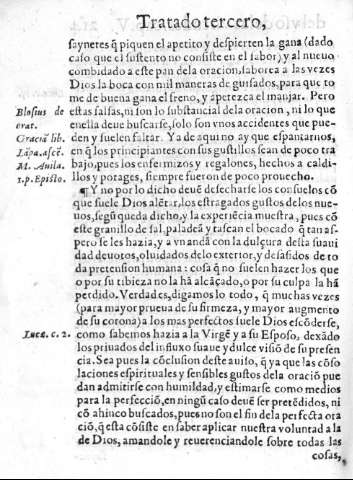 Tratado tercero,
sayneres q̃ piquen el apetito y despierten la gana (dado
caso que el sustento no consiste en el sabor) y al nueuo
combidado a este pan dela oracion, saborea a las vezes
Dios la boca con mil maneras de guisados, para que to
me de buena gana el freno, y apetezca el manjar. Pero
estas salsas, ni son lo substancial dela oracion, ni lo que
en ella deue buscarse, solo son vnos accidentes que pue-
den y suelen faltar. Ya de aqui no ay que espantarnos,
en q̃ los principiantes con sus gustillos sean de poco tra
bajo, pues los enfermizos y regalones, hechos a caldi-
llos y potages, siempre fueron de poco prouecho.
Blosius de
orat.
Graciã lib.
Lãpa. ascẽ.
M. Auila.
1. p. Episto.
¶ Y no por lo dicho deuẽ desecharse los consuelos cõ
que suele Dios alẽtar, los estragados gustos delos nue-
uos, segũ queda dicho, y la experiẽcia muestra, pues cõ
este granillo de sal, paladeã y tasean el bocado q̃ tan as-
pero se les hazia, y a vn andã con la dulçura desta suaui
dad deuotos, oluidados delo exterior, y desasidos de to
da pretension humana: cosa q̃ no suelen hazer los que
o por su tibieza no la hã alcãçado, o por su culpa la hã
perdido. Verdades, digamos lo todo, q̃ muchas vezes
(para mayor prueua de su firmeza, y mayor augmento
de su corona) a los mas perfectos suele Dios escõderse,
como sabemos hazia a la Virgẽ y a su Esposo, dexãdo
los priuados del influxo suaue y dulce visiõ de su presen
cia. Sea pues la cõclusion deste auiso, q̃ ya que las cõso
laciones espirituales y sensibles gustos dela oraciõ pue
dan admitirse con humildad, y estimarse como medios
para la perfecciõ, en ningũ caso deuẽ ser pretẽdidos, ni
cõ ahinco buscados, pues no son el fin dela perfecta ora
ciõ, q̃ esta cõsiste en saber aplicar nuestra voluntad a la
de Dios, amandole y reuerenciandole sobre todas las
Luca. c. 2.
cosas,